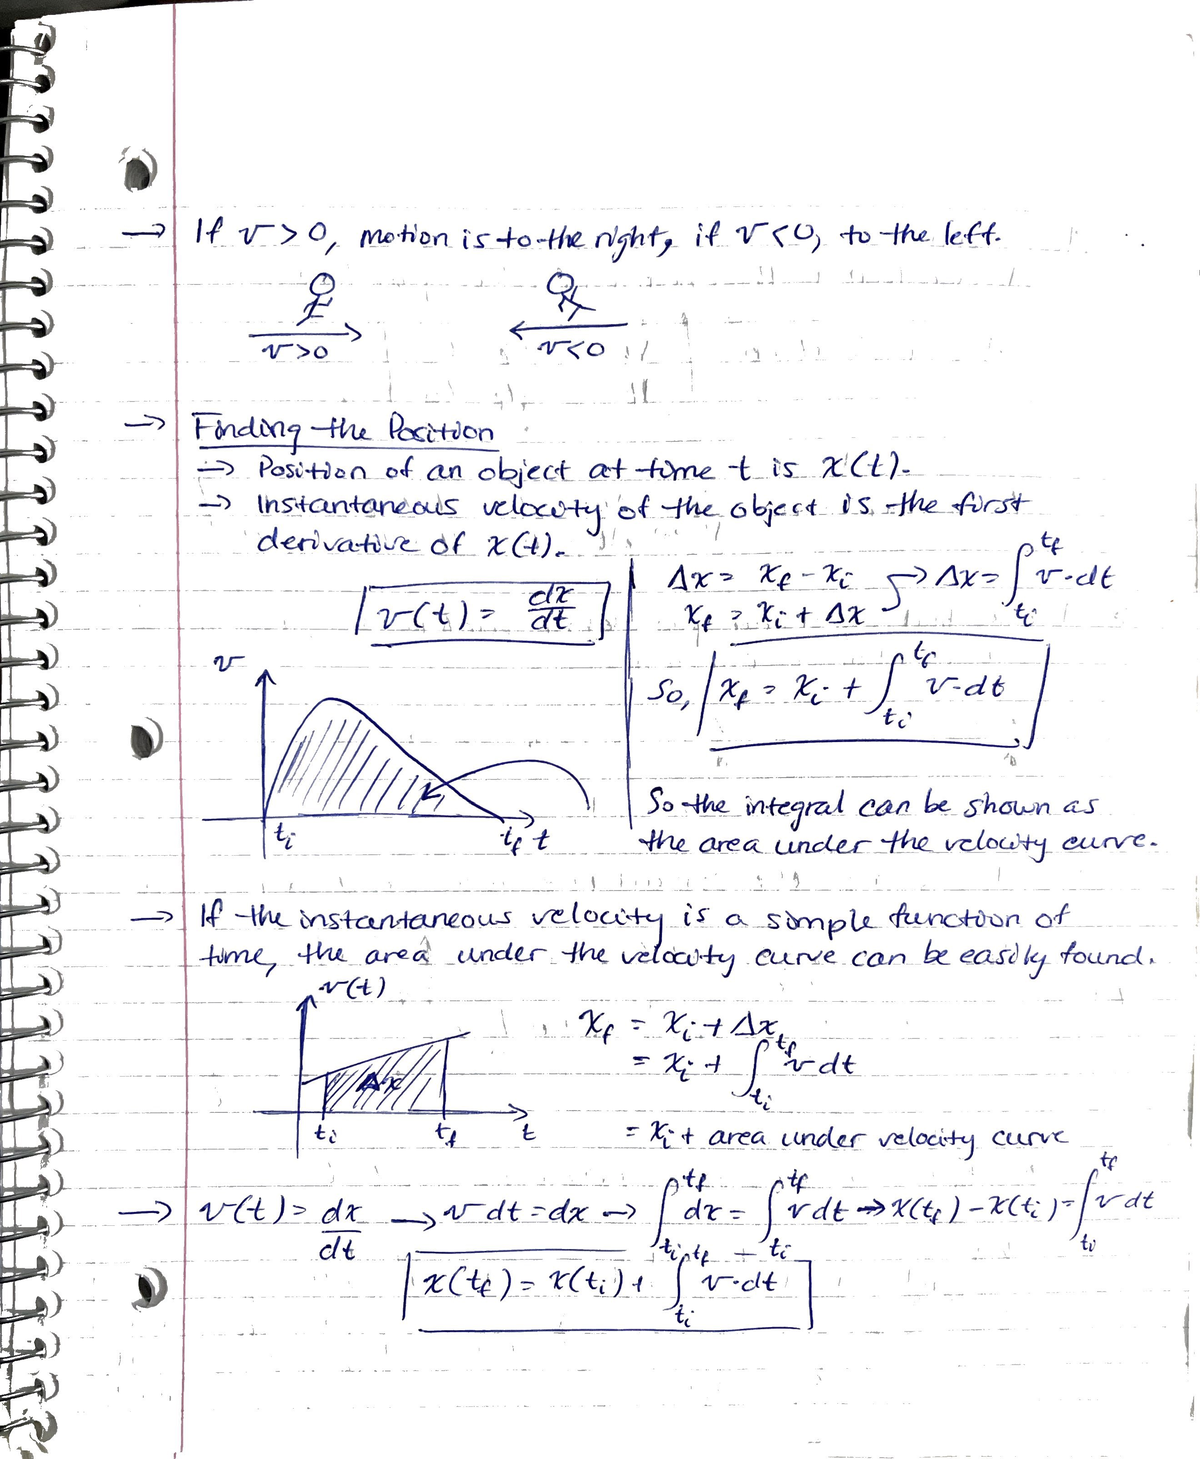 → If v>0, motion is to the right, if v<0, to the left.
v>0
v<0
→ Finding the Position
→ Position of an object at time t is x(t).
→ Instantaneous velocity of the object is the first
derivative of x(t).
v(t) = dx/dt
Δx = xf - xi → Δx = ∫ti^tf v·dt
xf = xi + Δx
So, xf = xi + ∫ti^tf v·dt
v
ti
tf t
So the integral can be shown as
the area under the velocity curve.
→ If the instantaneous velocity is a simple function of
time, the area under the velocity curve can be easily found.
v(t)
Δx
ti
tf
t
xf = xi + Δx
= xi + ∫ti^tf v dt
= xi + area under velocity curve
→ v(t) = dx/dt → v dt = dx → ∫ti^tf dx = ∫ti^tf v dt → x(tf) - x(ti) = ∫ti^tf v dt
x(tf) = x(ti) + ∫ti^tf v·dt